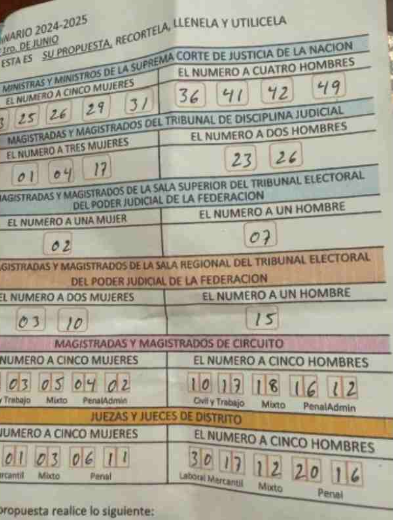 NARIO 2024-2025
1ro. DE JUNIO
ESTA ES SU PROPUESTA, RECORTELA, LLENELA Y UTILICELA
MINISTRAS Y MINISTROS DE LA SUPREMA CORTE DE JUSTICIA DE LA NACION
EL NUMERO A CINCO MUJERES EL NUMERO A CUATRO HOMBRES
3 25 26 29 31 36 41 42 49
MAGISTRADAS Y MAGISTRADOS DEL TRIBUNAL DE DISCIPLINA JUDICIAL
EL NUMERO A TRES MUJERES EL NUMERO A DOS HOMBRES
01 04 17 23 26
AGISTRADAS Y MAGISTRADOS DE LA SALA SUPERIOR DEL TRIBUNAL ELECTORAL
DEL PODER JUDICIAL DE LA FEDERACION
EL NUMERO A UNA MUJER EL NUMERO A UN HOMBRE
02 07
GISTRADAS Y MAGISTRADOS DE LA SALA REGIONAL DEL TRIBUNAL ELECTORAL
DEL PODER JUDICIAL DE LA FEDERACION
EL NUMERO A DOS MUJERES EL NUMERO A UN HOMBRE
03 10 15
MAGISTRADAS Y MAGISTRADOS DE CIRCUITO
NUMERO A CINCO MUJERES EL NUMERO A CINCO HOMBRES
03 05 04 02 10 17 18 16 12
y Trabajo Mixto PenalAdmin Civil y Trabajo Mixto PenalAdmin
JUEZAS Y JUECES DE DISTRITO
UMERO A CINCO MUJERES EL NUMERO A CINCO HOMBRES
01 03 06 11 30 17 12 20 16
rcantil Mixto Penal Laboral Mercantil Mixto Penal
propuesta realice lo siguiente: